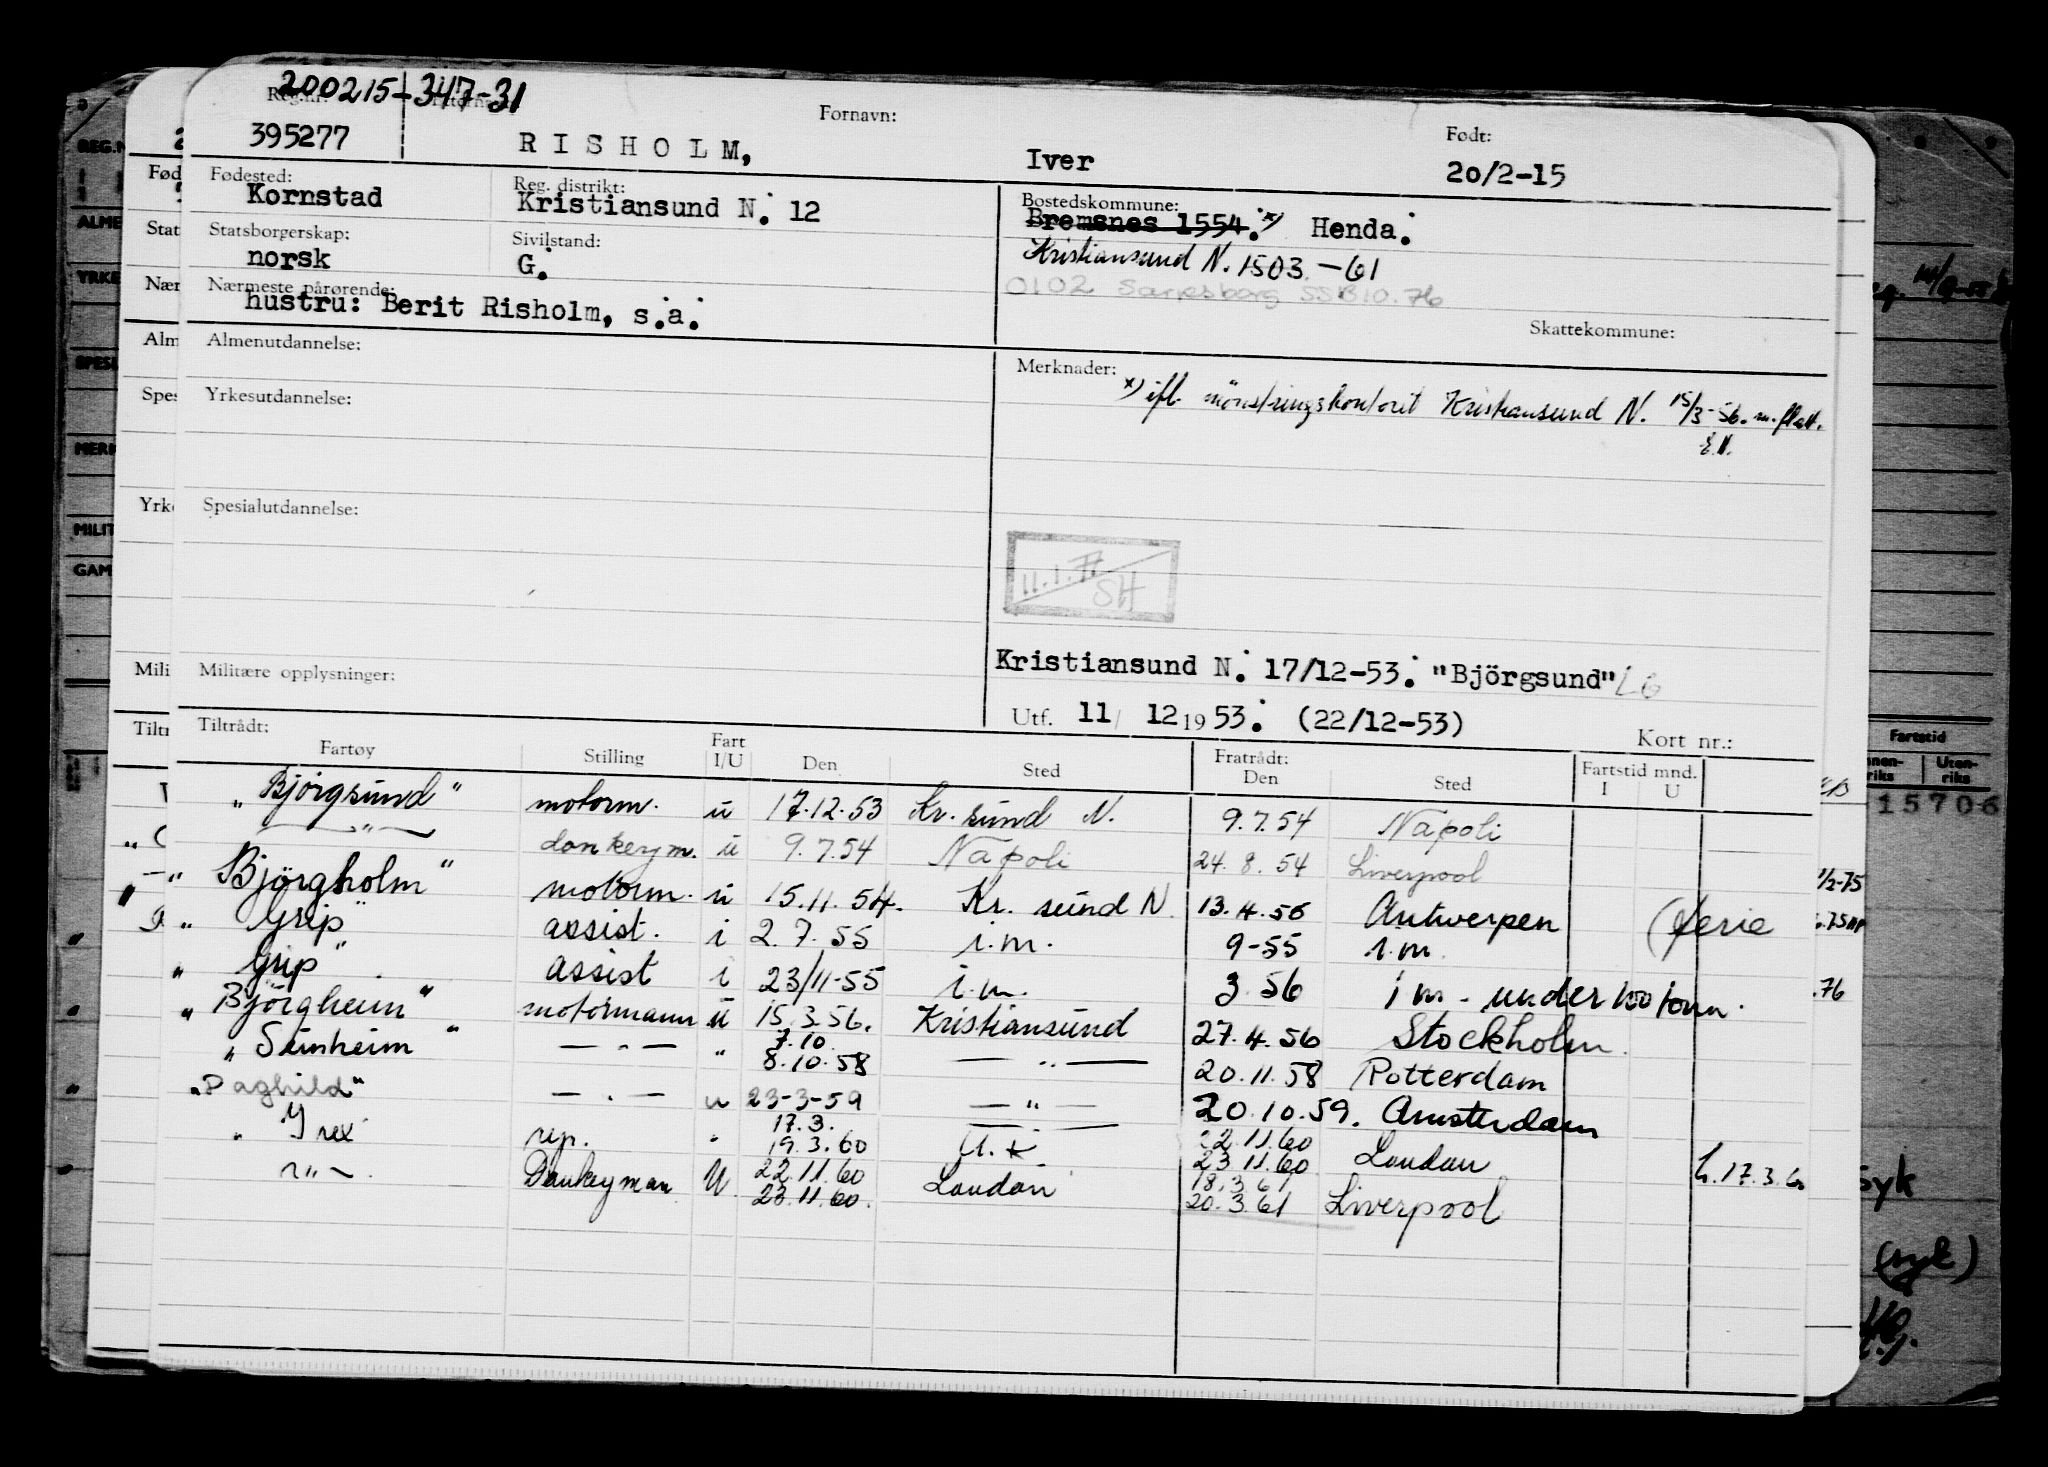 200215-347-31
Reg.nr. Fornavn: Født:
395277 RISHOLM, Iver 20/2-15
Fødested: Reg. distrikt: Bostedskommune:
Kornstad Kristiansund N. 12 Bremsnes 1554. x) Henda.
Statsborgerskap: Sivilstand: Kristiansund N. 1503 -61
norsk G. 0102 Sarpsborg SSB 10.76
Nærmeste pårørende:
hustru: Berit Risholm, s.a. Skattekommune:
Almenutdannelse: Merknader:
x) ifl. mönstringskontoret Kristiansund N. 15/3-56. m. flatt.
E.N.
Yrkesutdannelse:
Spesialutdannelse:
11.1.77 SH
Militære opplysninger: Kristiansund N. 17/12-53. "Björgsund" LG
Utf. 11/ 12 1953. (22/12-53)
Tiltrådt: Kort nr.:
Fartøy Stilling Fart I/U Den Sted Fratrådt: Den Sted Fartstid mnd. I U
"Björgsund" motorm. u 17.12.53 Kr. sund N. 9.7.54 Napoli
—"— donkeym. u 9.7.54 Napoli 24.8.54 Liverpool
"Björgholm" motorm. u 15.11.54. Kr. sund N. 13.4.56 Antwerpen (ferie
"Grip" assist. i 2.7.55 i.m. 9-55 i.m.
"Grip" assist i 23/11-55 i.m. 3.56 i m - under 100 tonn.
"Björgheim" motormann u 15.3.56. Kristiansund 27.4.56 Stockholm.
"Sunheim" — " — " 7.10. 8.10.58 — " — 20.11.58 Rotterdam
"Daghild" — " — u 23-3-59 — " — 20.10.59. Amsterdam
"Irex rep. " 17.3. 19.3.60 U.K. 22.11.60 23.11.60 London h. 17.3.60
— " — Donkeyman U 22.11.60 23.11.60. London 18.3.61 20.3.61 Liverpool
Fartstid
Uten-riks
15706
(syk)